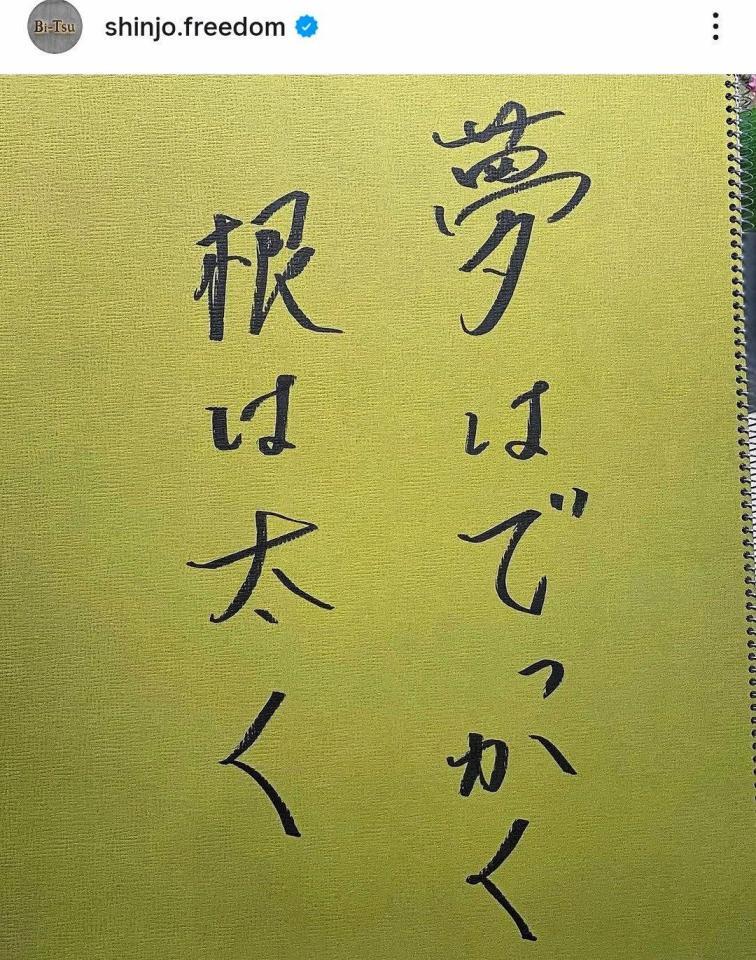 Bi-Tsu
shinjo.freedom
夢はでっかく
根は太く